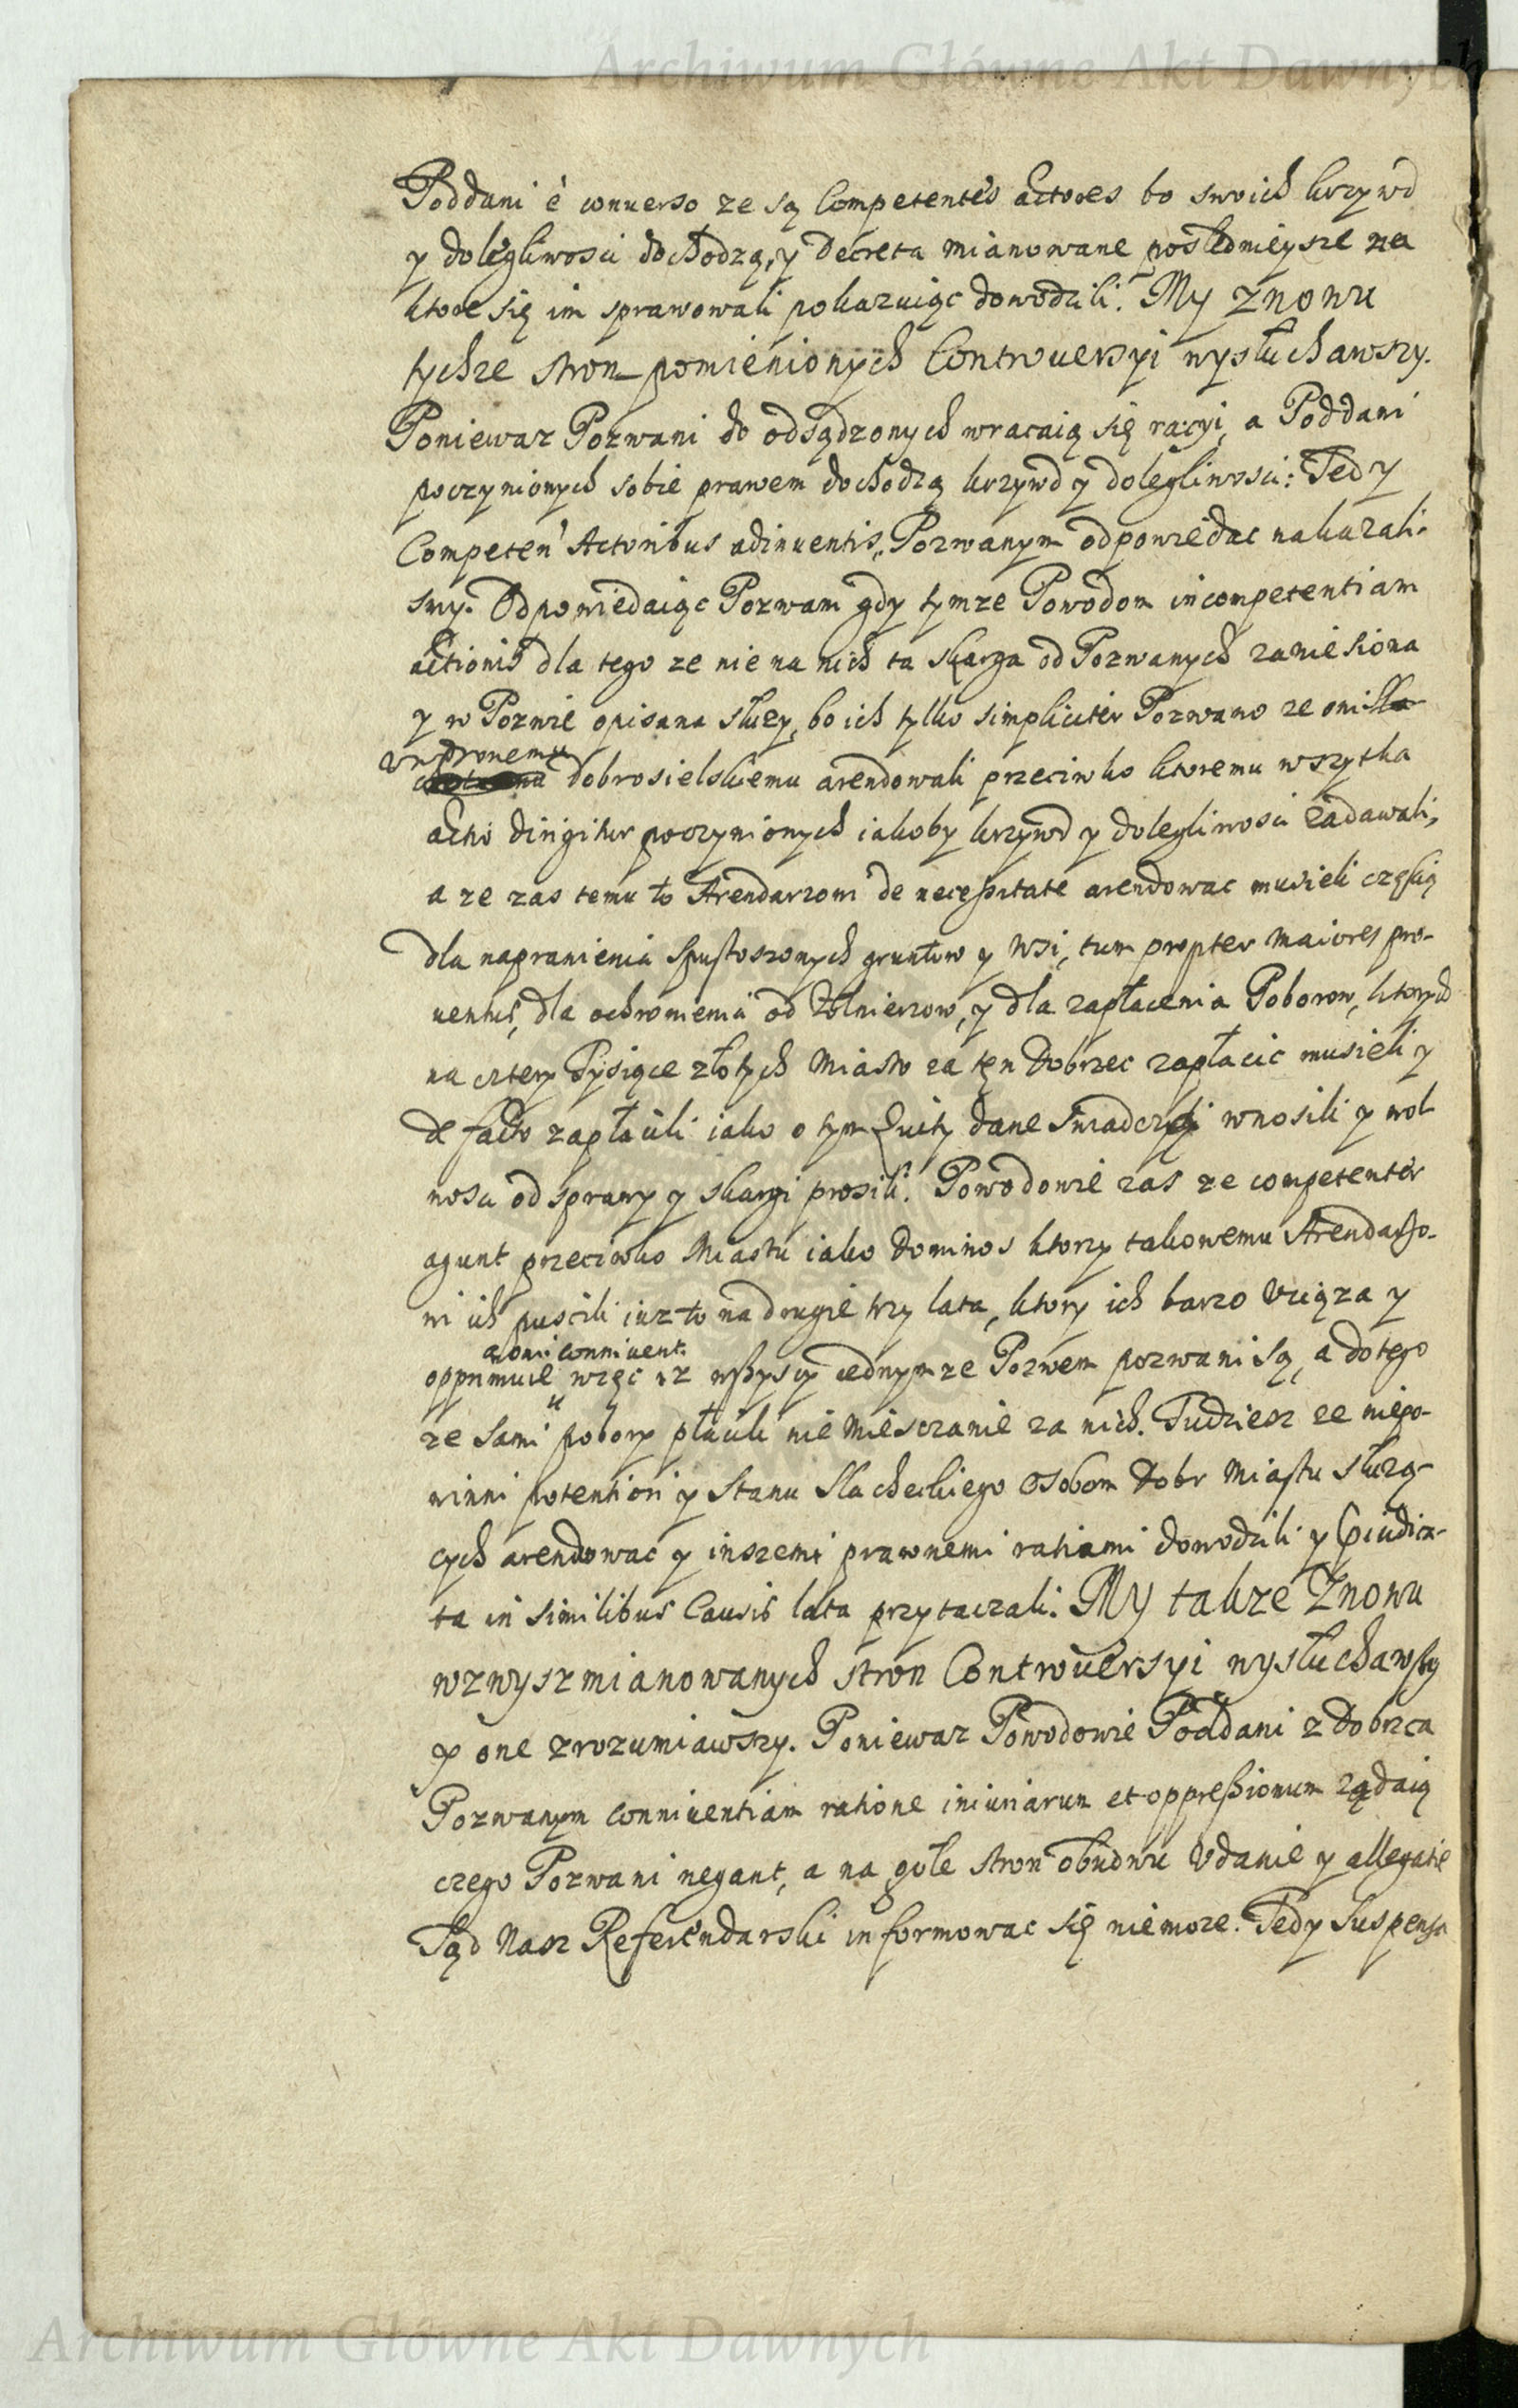 Archiwum Główne Akt Dawnych
Poddani è conuerso ze są Competentes actores bo swoich krzywd
y dolegliwosci dochodzą, y Decreta mianowane poslednieysze na
ktore się im sprawowali pokazuiąc dowodzili. My znowu
tychze stron pomienionych Controuersyi wysłuchawszy.
Poniewaz Pozwani do odsądzonych wracaią się racyi, a Poddani
poczynionych sobie prawem dochodzą krzywd y dolegliwosci: Tedy
Competen Actoribus adinuentis, Pozwanym odpowiedac nakazali-
smy. Odpowiedaiąc Pozwani gdy tymze Powodom incompetentiam
actionis dla tego ze nie na nich ta skarga od Pozwanych zaniesiona
y w Pozwie opisana słuzy, bo ich tylko simpliciter Pozwano ze oni
vrodzonemu
dobrosielskiemu arendowali przeciwko ktoremu wszytka
actio dirigitur poczynionych iakoby krzywd y dolegliwosci zadawali,
a ze zas temu to Arendarzowi de necessitate arendowac musieli częscią
dla naprawienia spustoszonych gruntow y wsi, tum propter maiores pro-
uentus, dla ochronienia od Zołnierzow, y dla zapłacenia Poborow, ktorych
na cztery Tysiące złotych Miasto za ten Dobrzec zapłacic musieli y
de facto zapłacili iako o tym Quity dane swiadczą wnosili y wol
nosci od sprawy y skargi prosili. Powodowie zas ze competenter
agunt przeciwko Miastu iako Dominos ktorzy takowemu Arendarzo-
wi ich puscili iuz to na drugie trzy lata, ktory ich barzo Uciąza y
a oni conniuent
opprimuie więc iz wszyscy iednymze Pozwem pozwani są, a do tego
ze sami pobory płacili nie Miesczanie za nich. Tudziesz ze niepo-
winni potentiori y Stanu Slacheckiego osobom Dobr Miastu słuzą-
cych arendowac y inszemi prawnemi ratiami dowodzili y Praeiudica-
ta in similibus Causis lata przytaczali. My takze Znowu
wzwyszmianowanych stron Controuersyi wysłuchawszy
y one zrozumiawszy. Poniewaz Powodowie Poddani z Dobrzca
Pozwanym conniuentiam ratione iniuriarum et oppressionum ządaią
czego Pozwani negant, a na gołe stron obudwu Udanie y allegatie
Sąd Nasz Referendarski informowac się niemoze. Tedy Suspensa
Archiwum Główne Akt Dawnych